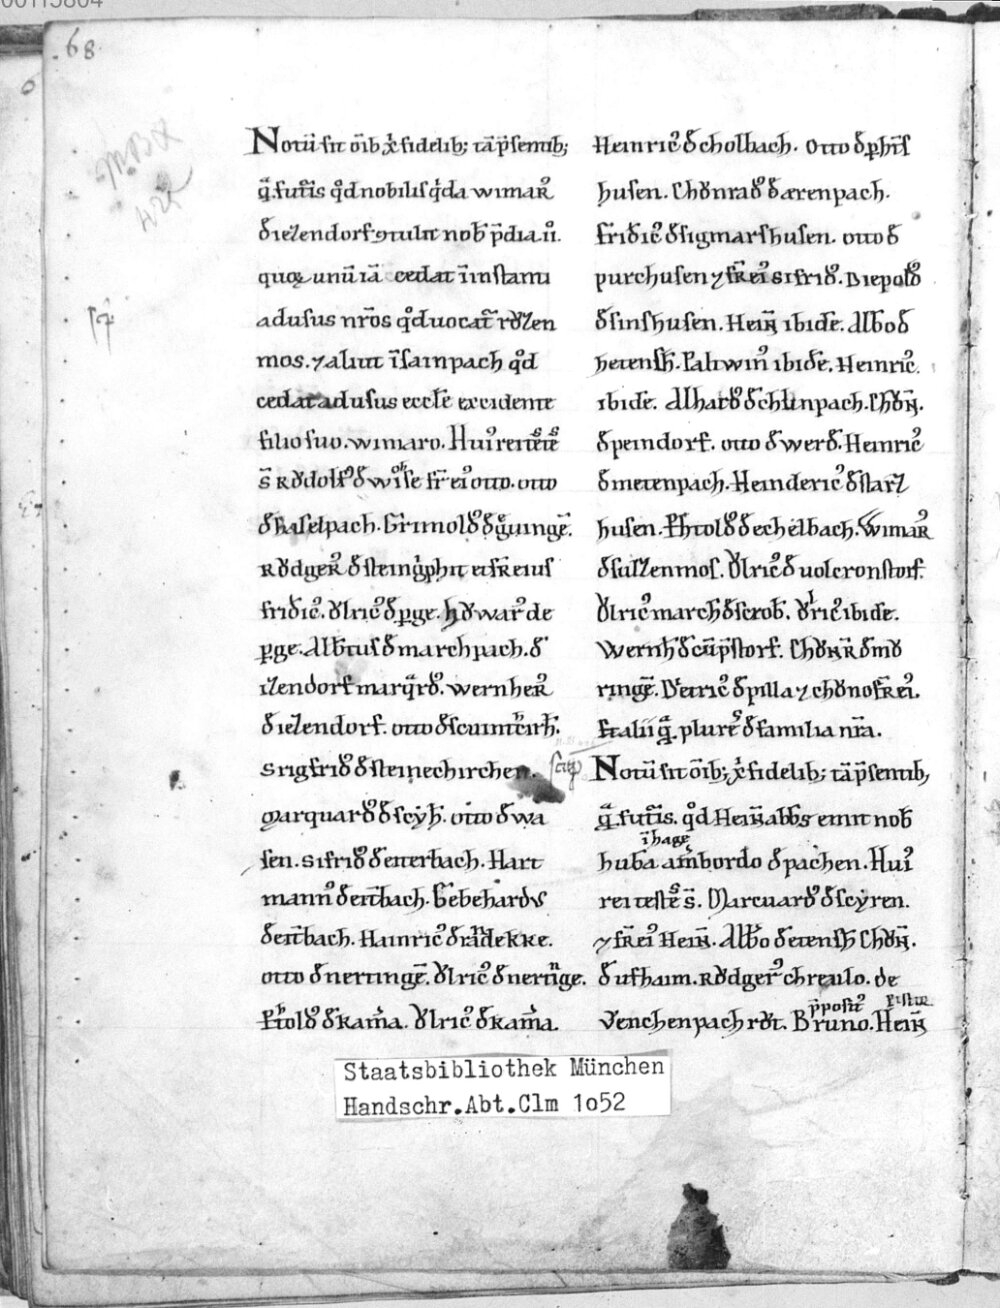 68
Notū sit oīb; xp̄ fidelib; tā p̄sentib;
q̄ futīs qd nobilis qda wimar
dieZendorf ꝯtulit nob p̄dia .ii.
quoꝝ unū iā cedat ī instanti
ad usus nr̄os qd uocat rŏZen
mos. ⁊ aliut ī sainpach qd
cedat ad usus eccl̄e excidente
filio suo. wimaro. Hui rei testes
s̄ Rŏdolf d wise fr̄ ei otto. otto
d haselpach. Grimold d
Rŏdger d steing
fridic. ŏlric d p̲ge. hŏwar de
p̲ge. Albtus d marchpach. d
iZendorf marqrd. wernher
d ieZendorf. otto d
Sigfrid d steinechirchen.
Marquard d scẏh. otto d wa
sen. Sifrid d eiterbach. Hart
mann d eitbach. Gebehardus
d eitbach. Hainric d radekke.
otto d nertinge. ŏlric d nertinge.
d kama. ŏlric d kama.
Heinric d cholbach. otto d
husen. Chŏnrad d ærenpach.
fridic d sigmarshusen. otto d
purchusen ⁊ fr̄ ei Sifrid. Diepold
d sinshusen. Hein ibide. Albo d
hetensh. Saliwin ibide. Heinric
ibide. Alhard d chlinpach. Chŏn.
d peindorf. otto d werd. Heinric
d metenpach. Heinderic d starZ
husen. d echelbach. Wimar
d sulZenmos. ŏlric d uolcronstorf.
ŏlric march d scrob. ŏric ibide.
Wernh d . Chŏnr d mŏ
ringe. Dietric d pilla ⁊ chŏno fr̄ ei.
⁊ alii q̄ plures d familia nr̄a.
Notū sit oīb; xp̄ fidelib; tā p̄sentib;
q̄ futīs. qd Hein abbs emit nob
ī hage
huba ambordo d pachen. Hui
rei testes s̄. Marcuard d scẏren.
⁊ fr̄ ei Hein. Albo d etensh Chŏn.
d ufhaim. Rŏdger chreulo. de
p̄posit pistor
Venchenpach rŏt. Bruno. Hein
Staatsbibliothek München
Handschr.Abt.Clm 1o52